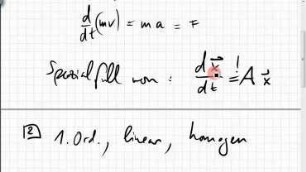 d/dt (mv) = ma = F
Spezialfall von : dx⃗/dt =! A x⃗
2 1. Ord., linear, homogen